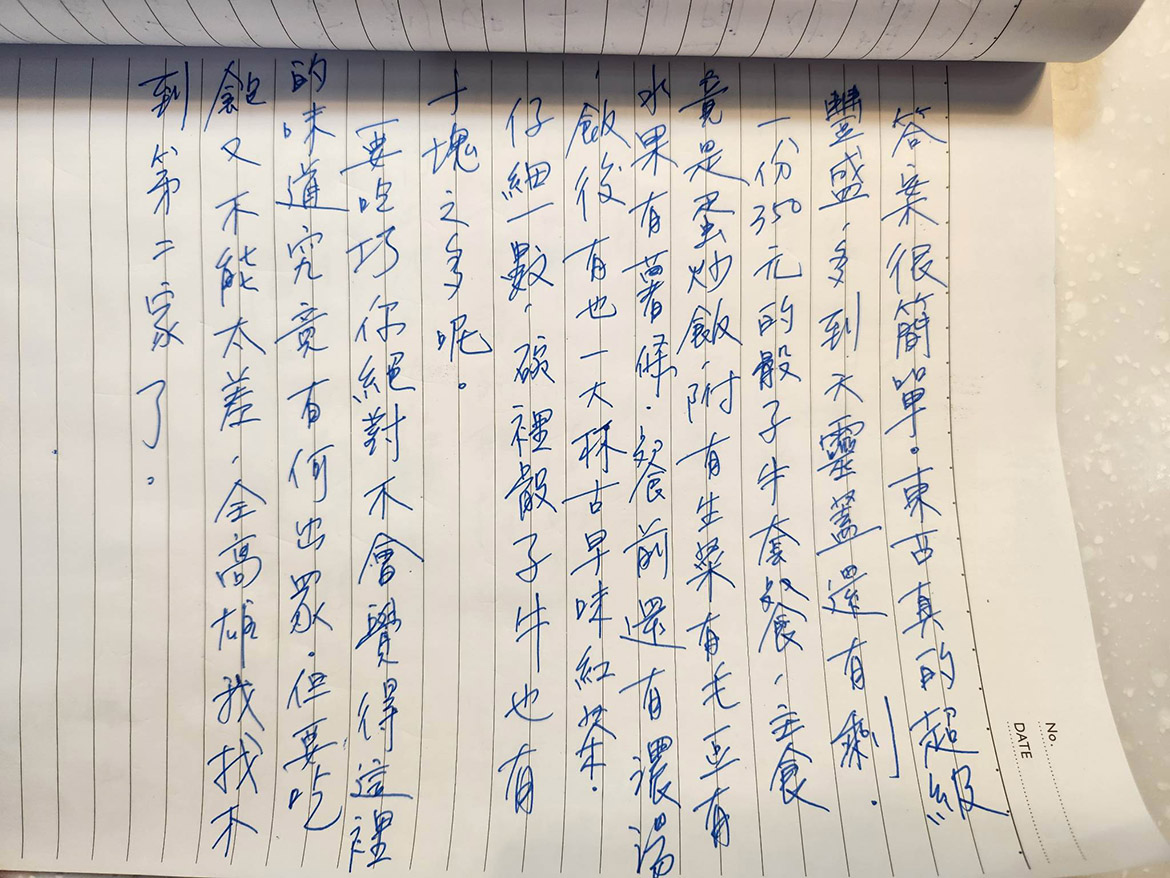 答案很簡單。東西真的超級
豐盛,多到天靈蓋還有剩。
一份350元的骰子牛套餐,主食
竟是蛋炒飯,附有生菜有毛豆有
水果有薯條.餐前還有濃湯
,飯後有也一大杯古早味紅茶.
仔細一數,碗裡骰子牛也有
十塊之多呢。
要吃巧你絕對不會覺得這裡
的味道究竟有何出眾.但要吃
飽又不能太差,全高雄我找不
到第二家了。
No.
DATE